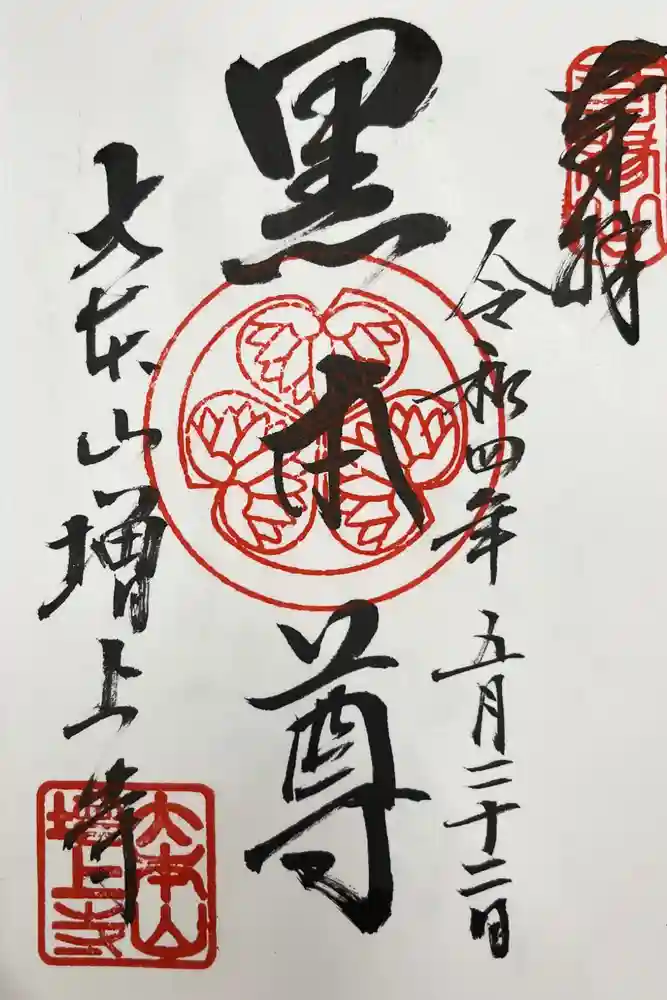 奉拝
令和四年 五月二十二日
黒本尊
大本山増上寺
大本山
増上寺